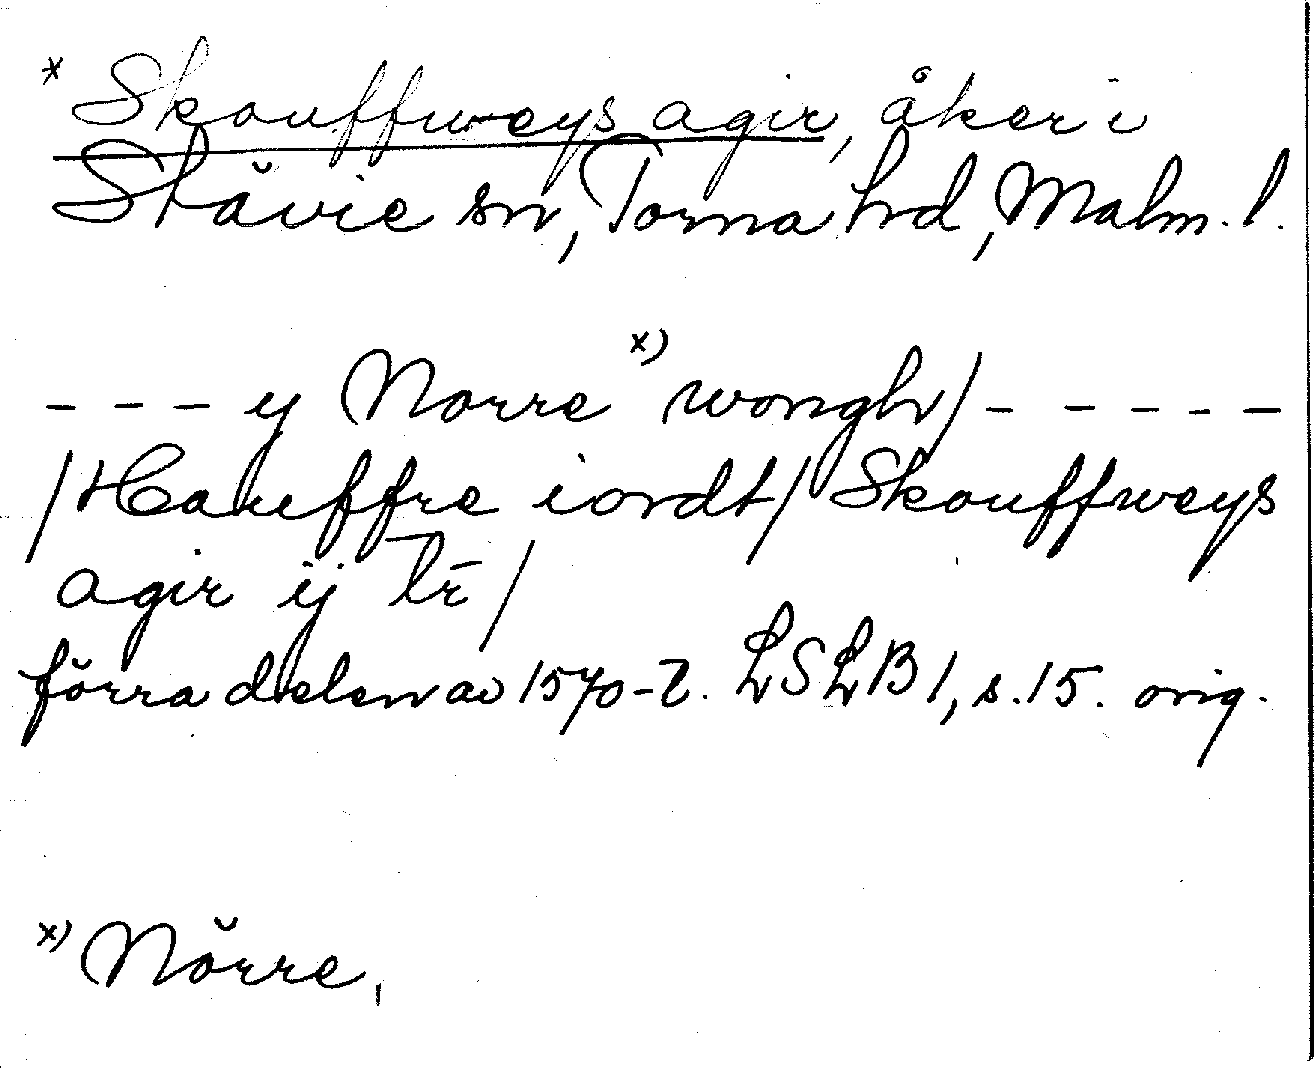 * Skouffweys agir, åker i
Stävie sn, Torna hd, Malm. l.
- - - y Norre x) wongh/ - - - - -
/Haueffre iordt/ Skouffweys
agir ij
förra delen av 1570-t. LSLB 1, s. 15. orig.
x) Nörre,